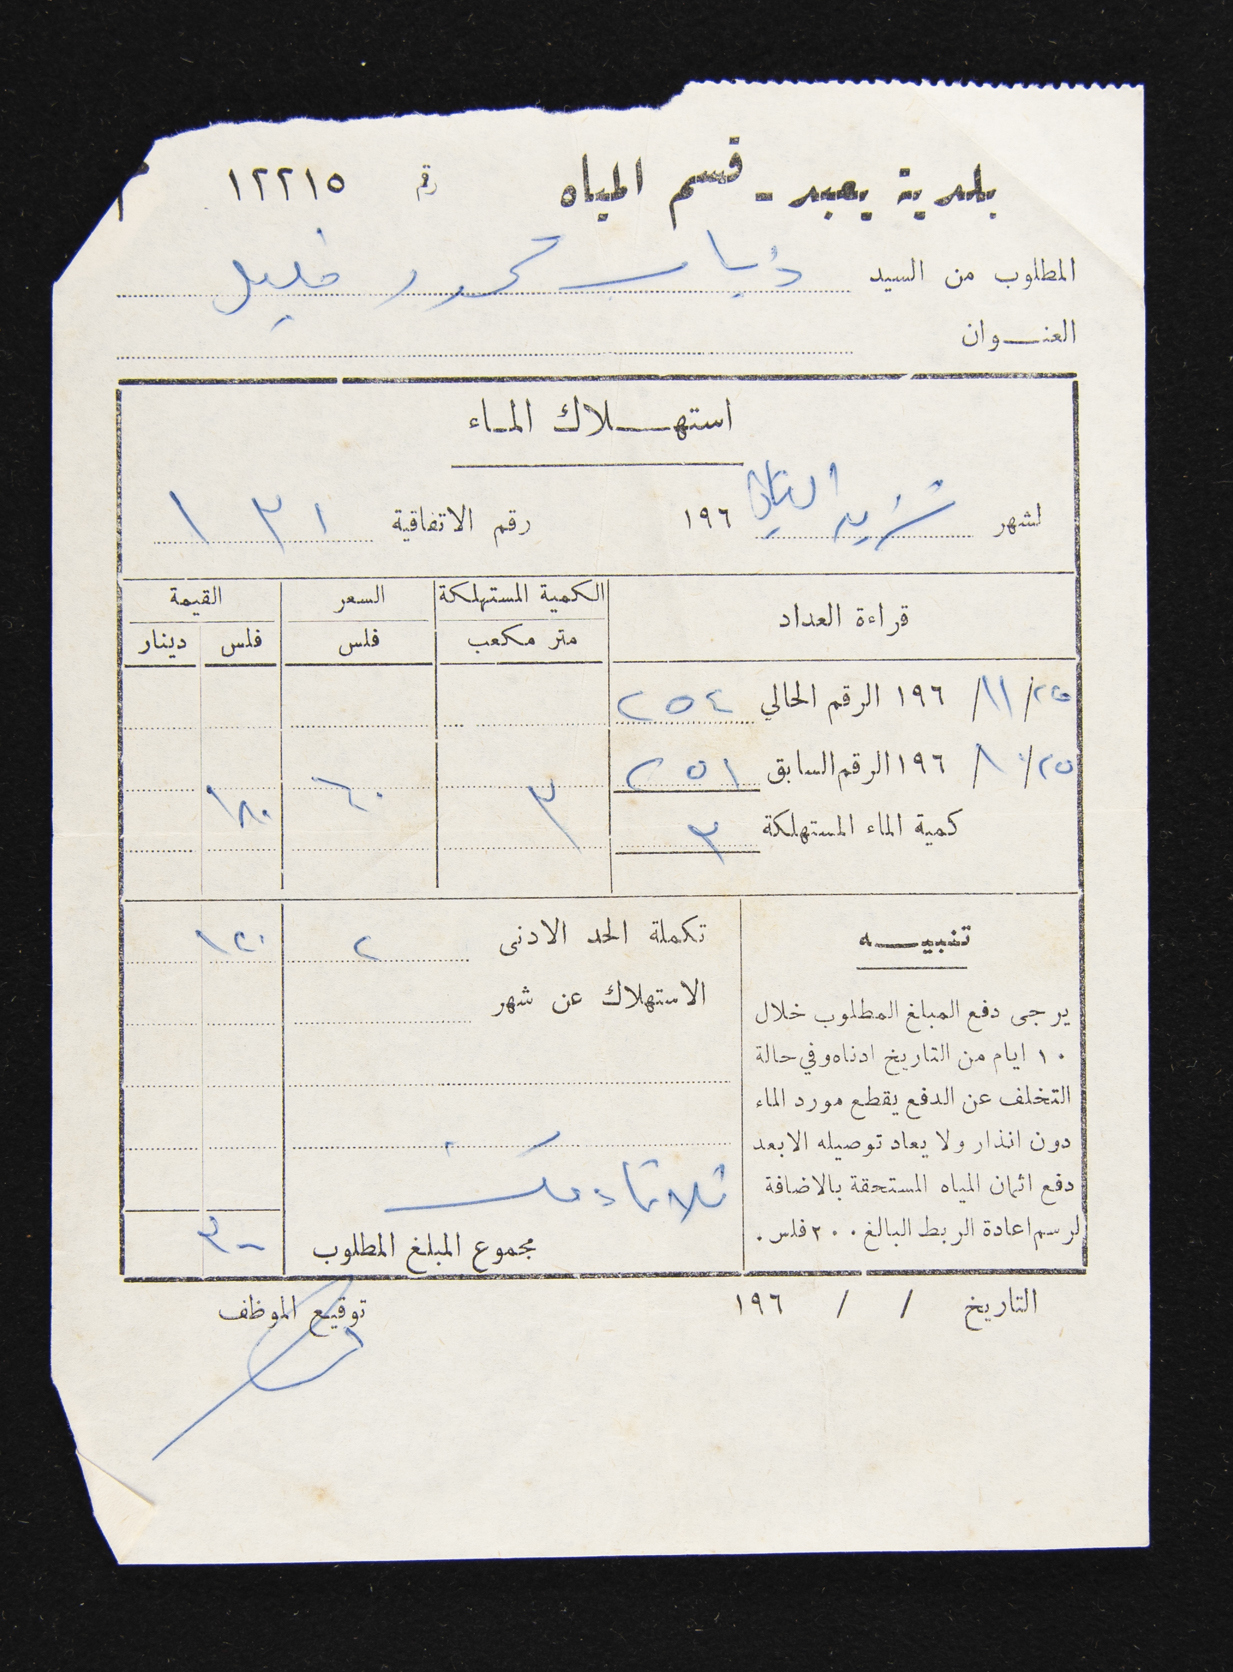 بلدية يعبد - قسم المياه رقم ١٢٢١٥
المطلوب من السيد ذياب محمود خليل
العنـوان
استهـلاك المـاء
لشهر تشرين الثاني ١٩٦ رقم الاتفاقية ١٣١
قراءة العداد الكمية المستهلكة السعر القيمة
متر مكعب فلس فلس دينار
٢٥/ ١١/ ١٩٦ الرقم الحالي ٢٥٤
٢٥/ ١٠/ ١٩٦ الرقم السابق ٢٥١
٣ ٦٠ ١٨٠
كمية الماء المستهلكة ٣
تكملة الحد الادنى ٢ ١٢٠
الاستهلاك عن شهر
تنبيـه
يرجى دفع المبلغ المطلوب خلال
١٠ ايام من التاريخ ادناه وفي حالة
التخلف عن الدفع يقطع مورد الماء
دون انذار ولا يعاد توصيله الا بعد
دفع اثمان المياه المستحقة بالاضافة
لرسم اعادة الربط البالغ ٢٠٠ فلس.
مجموع المبلغ المطلوب ٣٠٠
التاريخ / / ١٩٦ توقيع الموظف